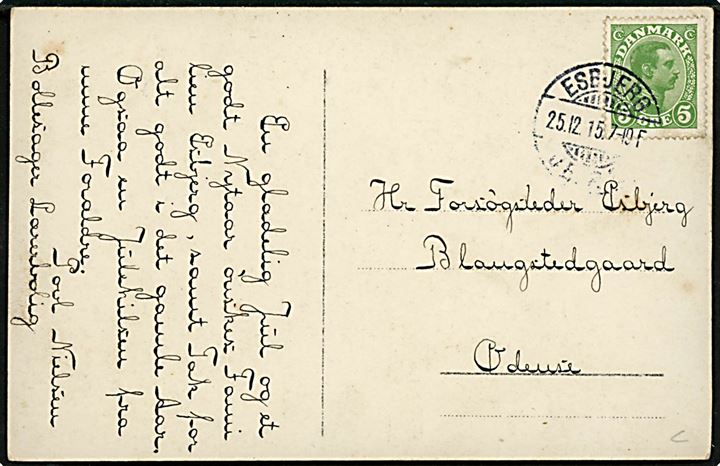 En glædelig Juul og et
godt Nytaar ønskes Fami
lien Esbjerg, samt Tak for
alt godt i det gamle Aar.
Ogsaa en Julehilsen fra
mine Forældre.
Poul Nielsen
Bollesager
DANMARK
5 ØRE 5
ESBJERG
25.12.15. 7-10 F
Hr Forsøgsleder Esbjerg
Blangstedgaard
Odense